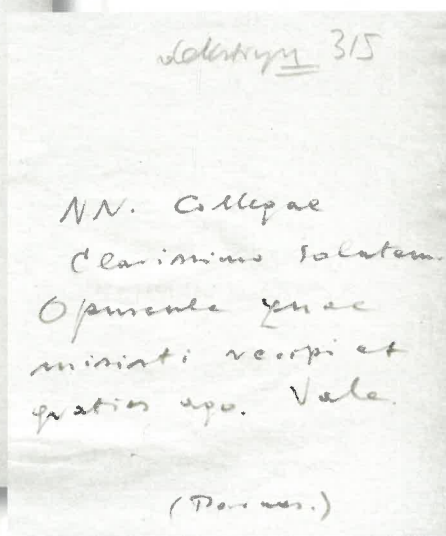 315
NN. Collegae
Clarissimo Salutem.
Opuscula quae
misisti recepi et
gratias ago. Vale.